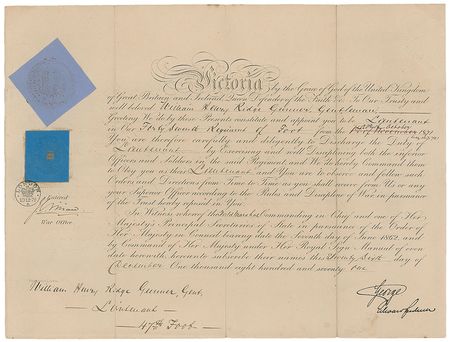 Victoria
by the Grace of God of the United Kingdom
of Great Britain and Ireland, Queen, Defender of the Faith &c. To Our Trusty and
well beloved William Henry Ridge Gunner, Gentleman
Greeting We do by these Presents constitute and appoint you to be Lieutenant
in Our Regiment of Foot from the
You are therefore carefully and diligently to Discharge the Duty of
Lieutenant by Exercising and well Disciplining both the inferior
Officers and Soldiers in the said Regiment, and We do hereby Command them
to Obey you as their Lieutenant and You are to observe and follow such
Orders and Directions from Time to Time as you shall receive from Us or any
your Superior Officer according to the Rules and Discipline of War in pursuance
of the Trust hereby reposed in You.
In Witness whereof Commanding in Chief and one of Her
Majesty's Principal Secretaries of State in pursuance of the Order of
Her Majesty in Council bearing date the Seventh day of June 1862, and
by Command of Her Majesty under Her Royal Sign Manual of even
date herewith hereunto subscribe their names this Twenty Sixth day of
December One thousand eight hundred and seventy one
War Office
William Henry Ridge Gunner, Gent.
Lieutenant
47th Foot
George